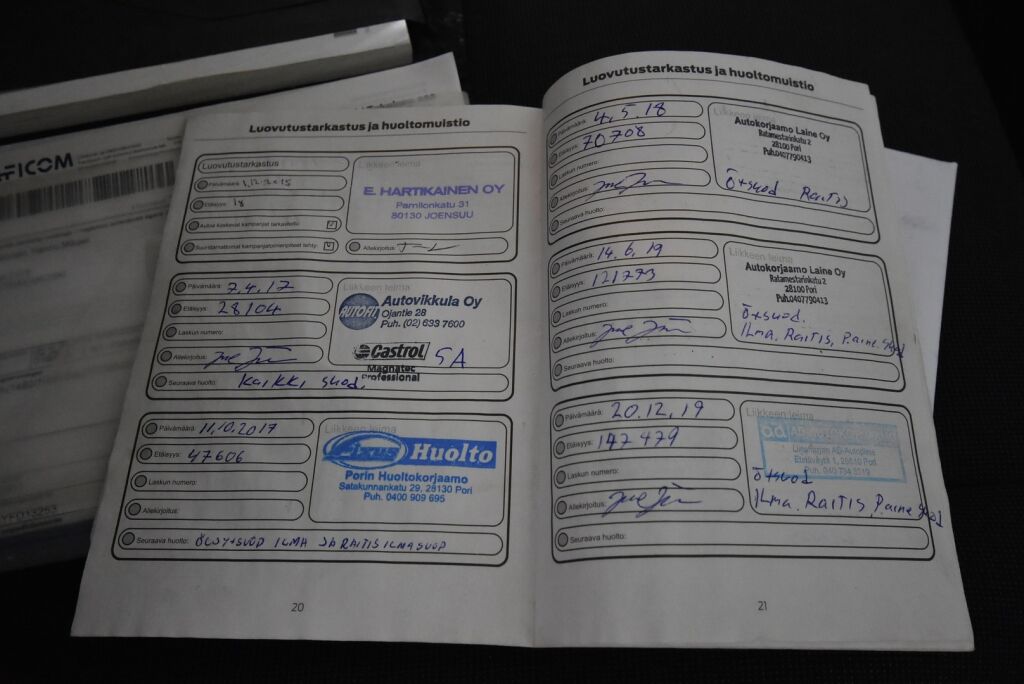 FICOM
Luovutustarkastus ja huoltomuistio
Luovutustarkastus
Päivämäärä:
Etäisyys: 18
Autoa koskevat kampanjat tarkastettu:
Suorittamattomat kampanjatoimenpiteet tehty:
Liikkeen leima
E. HARTIKAINEN OY
Parnilonkatu 31
80130 JOENSUU
Allekirjoitus:
Päivämäärä: 7.4.17
Etäisyys: 28104
Laskun numero:
Allekirjoitus:
Seuraava huolto: Kaikki suod.
Liikkeen leima
AUTOFIT
Autovikkula Oy
Ojantie 28
Puh. (02) 633 7600
Castrol
Magnatec
Professional
SA
Päivämäärä: 11.10.2017
Etäisyys: 47606
Laskun numero:
Allekirjoitus:
Seuraava huolto: ÖLJY+SUOD ILMA JA RAITISILMASUOD
Liikkeen leima
Fixus Huolto
Porin Huoltokorjaamo
Satakunnankatu 29, 28130 Pori
Puh. 0400 909 695
20
Luovutustarkastus ja huoltomuistio
Päivämäärä: 4.5.18
Etäisyys: 70708
Laskun numero:
Allekirjoitus:
Seuraava huolto:
Liikkeen leima
Autokorjaamo Laine Oy
Ratamestarinkatu 2
28100 Pori
Puh.0407790413
Ö+suod Raitis
Päivämäärä: 14.6.19
Etäisyys: 121773
Laskun numero:
Allekirjoitus:
Seuraava huolto:
Liikkeen leima
Autokorjaamo Laine Oy
Ratamestarinkatu 2
28100 Pori
Puh.0407790413
Ö+suod.
ILma, Raitis, Paine suod
Päivämäärä: 20.12.19
Etäisyys: 147479
Laskun numero:
Allekirjoitus:
Seuraava huolto:
Liikkeen leima
ad
Ö+suod
ILma, RAITIS, Paine suod
21